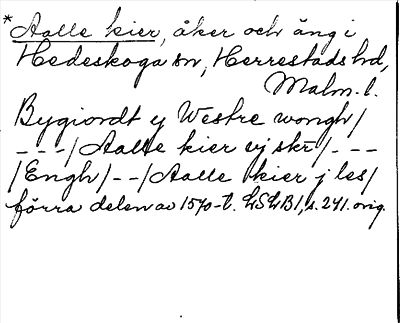 *Aalle kier, åker och äng i
Hedeskoga sn, Herrestads hd,
Malm. l.
Bygiordt y Westre wongh/
---/Aalle kier vj skr/---
/Engh/--/Aalle kier j les/
förra delen av 1570-t. LSLB1, s. 241. orig.